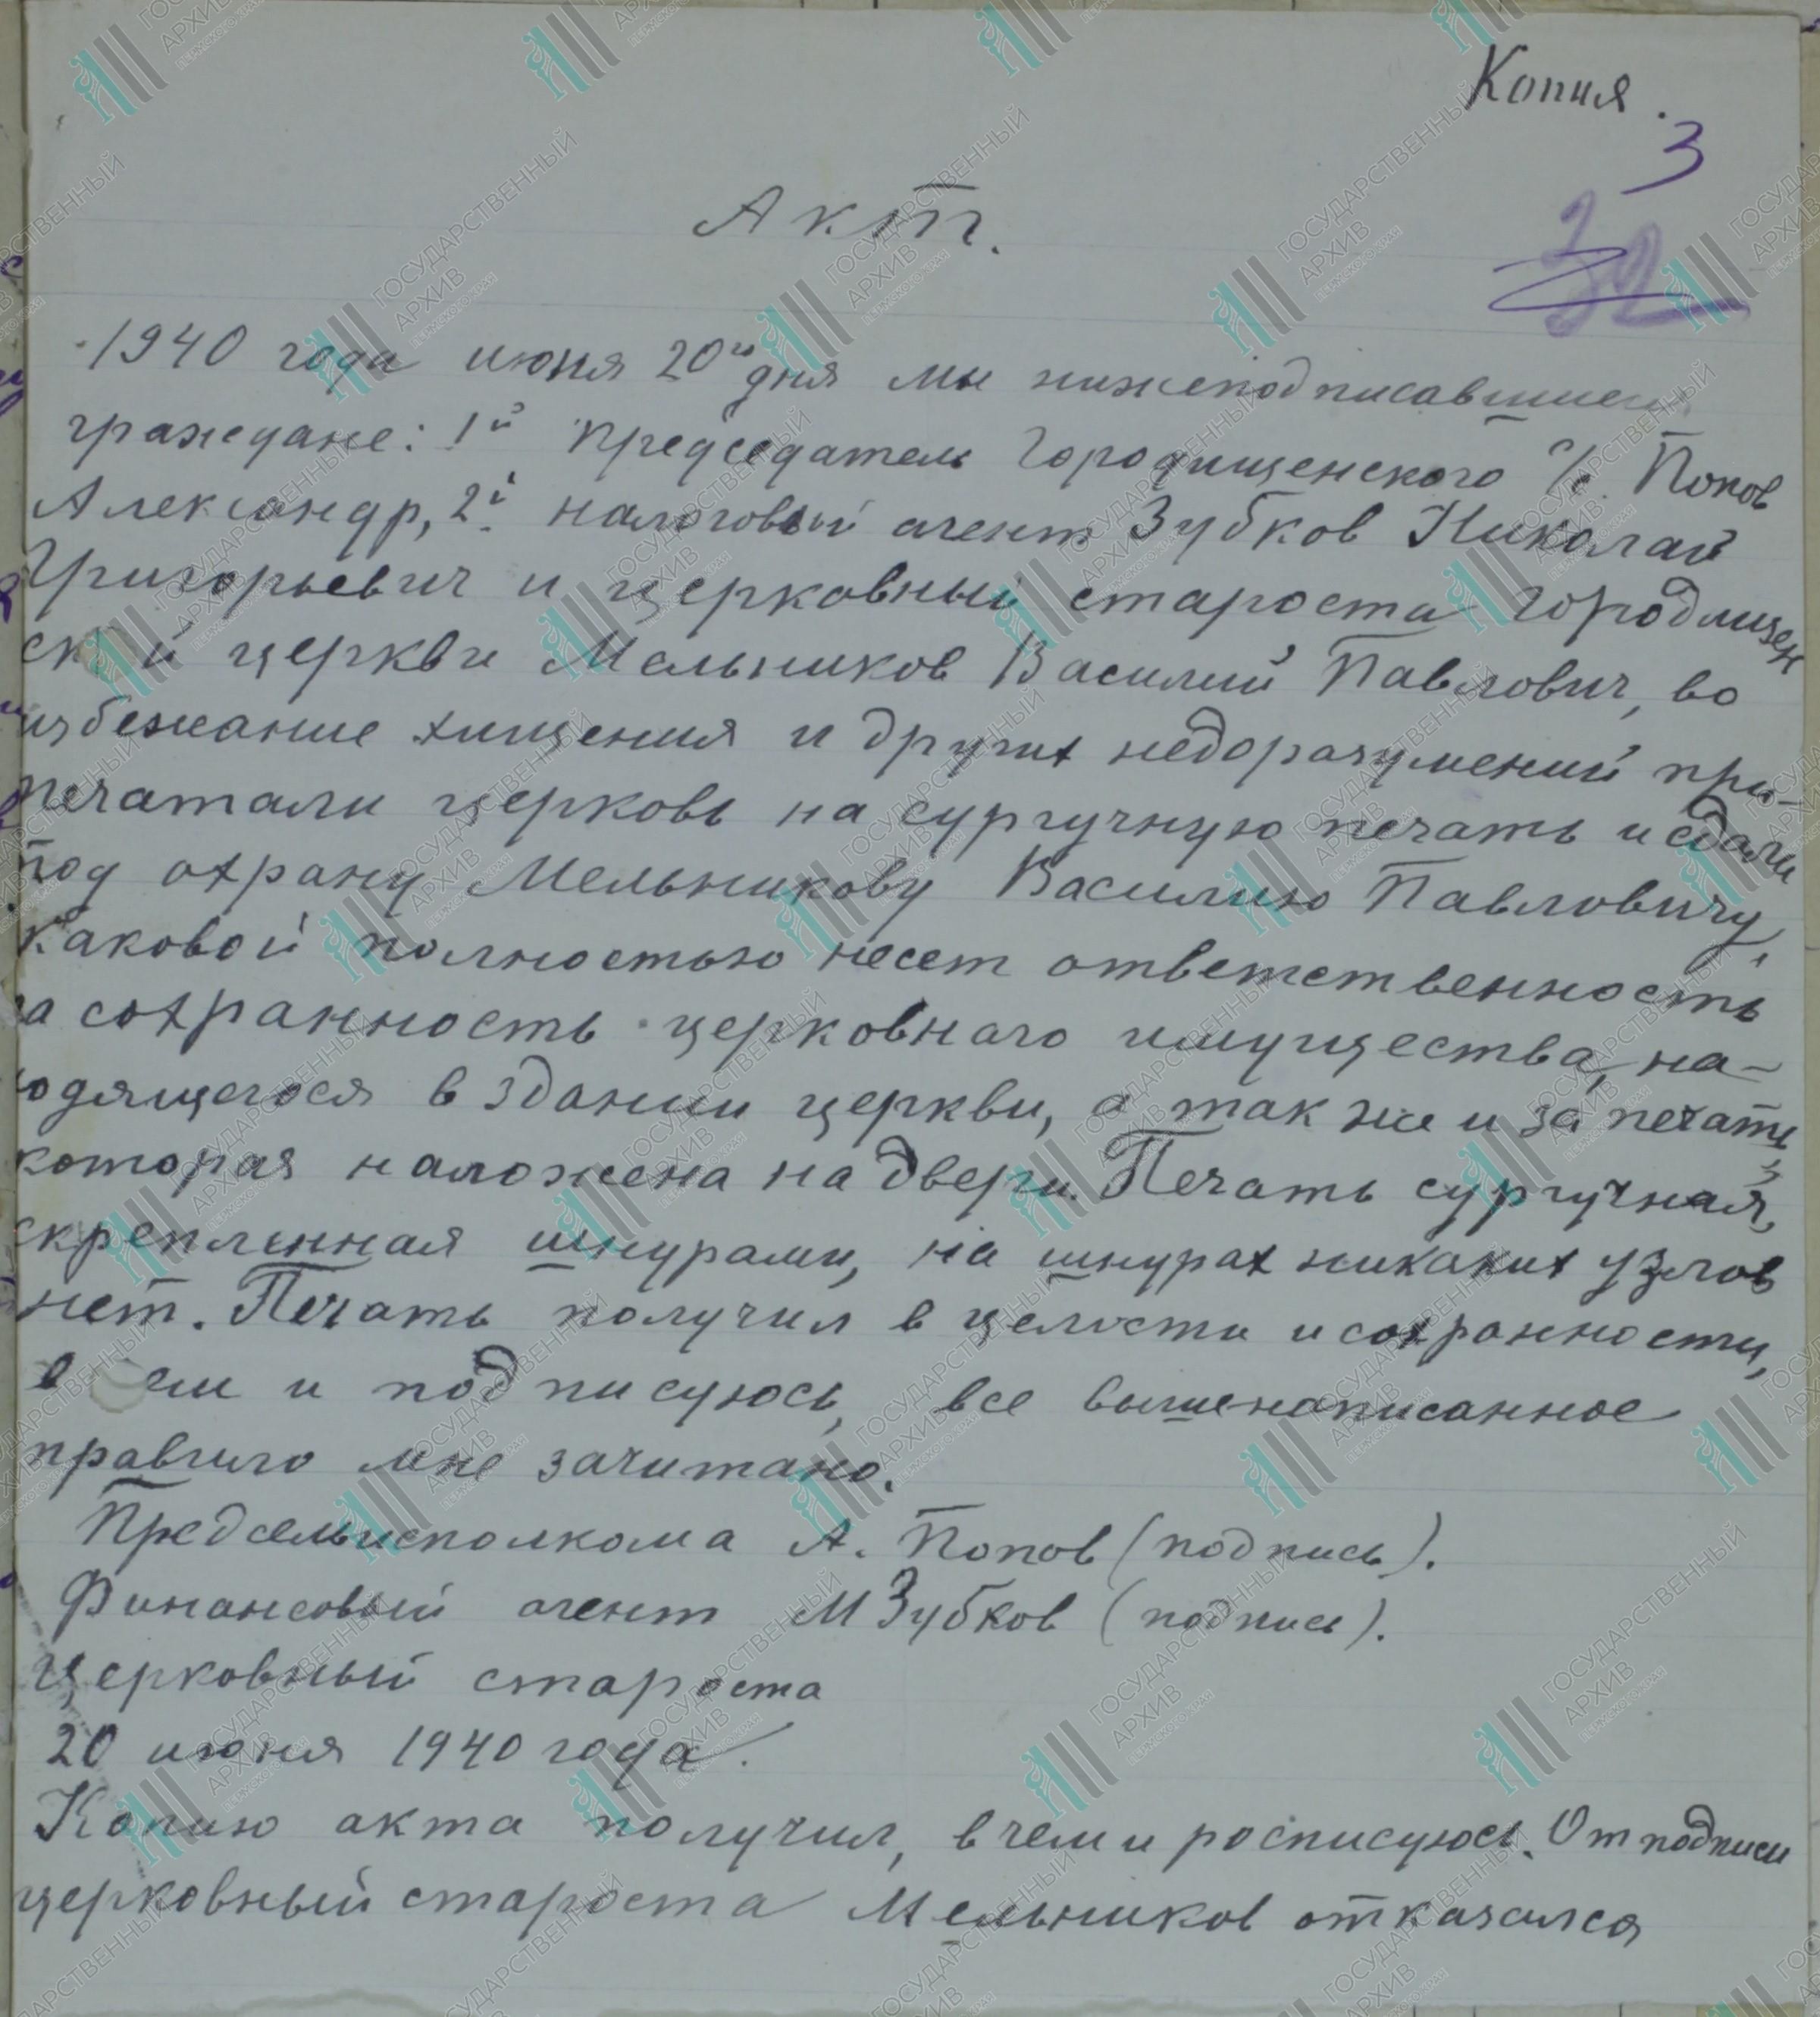 Копия.
3
32
Акт.
1940 года июня 20го дня мы нижеподписавшиеся
граждане: 1й Председатель Городищенского с/с. Попов
Александр, 2й налоговый агент Зубков Николай
Григорьевич и церковный староста Городищен
ск й церкви Мельников Василий Павлович, во
избежание хищения и других недоразумений при-
печатали церковь на сургучную печать и сдали
под охрану Мельникову Василию Павловичу,
каковой полностью несет ответственность
за сохранность церковнаго имущества, на-
ходящегося в здании церкви, а так же и за печать
которая наложена на двери. Печать сургучная,
скрепленная шнурами, на шнурах никаких узлов
нет. Печать получил в целости и сохранности,
в ем и подписуюсь, все вышенаписанное
правило мне зачитано.
Предсельисполкома А. Попов (подпись).
Финансовый агент М Зубков (подпись).
Церковный староста
20 июня 1940 года.
Копию акта получил, в чем и росписуюсь. От подписи
церковный староста Мельников отказался